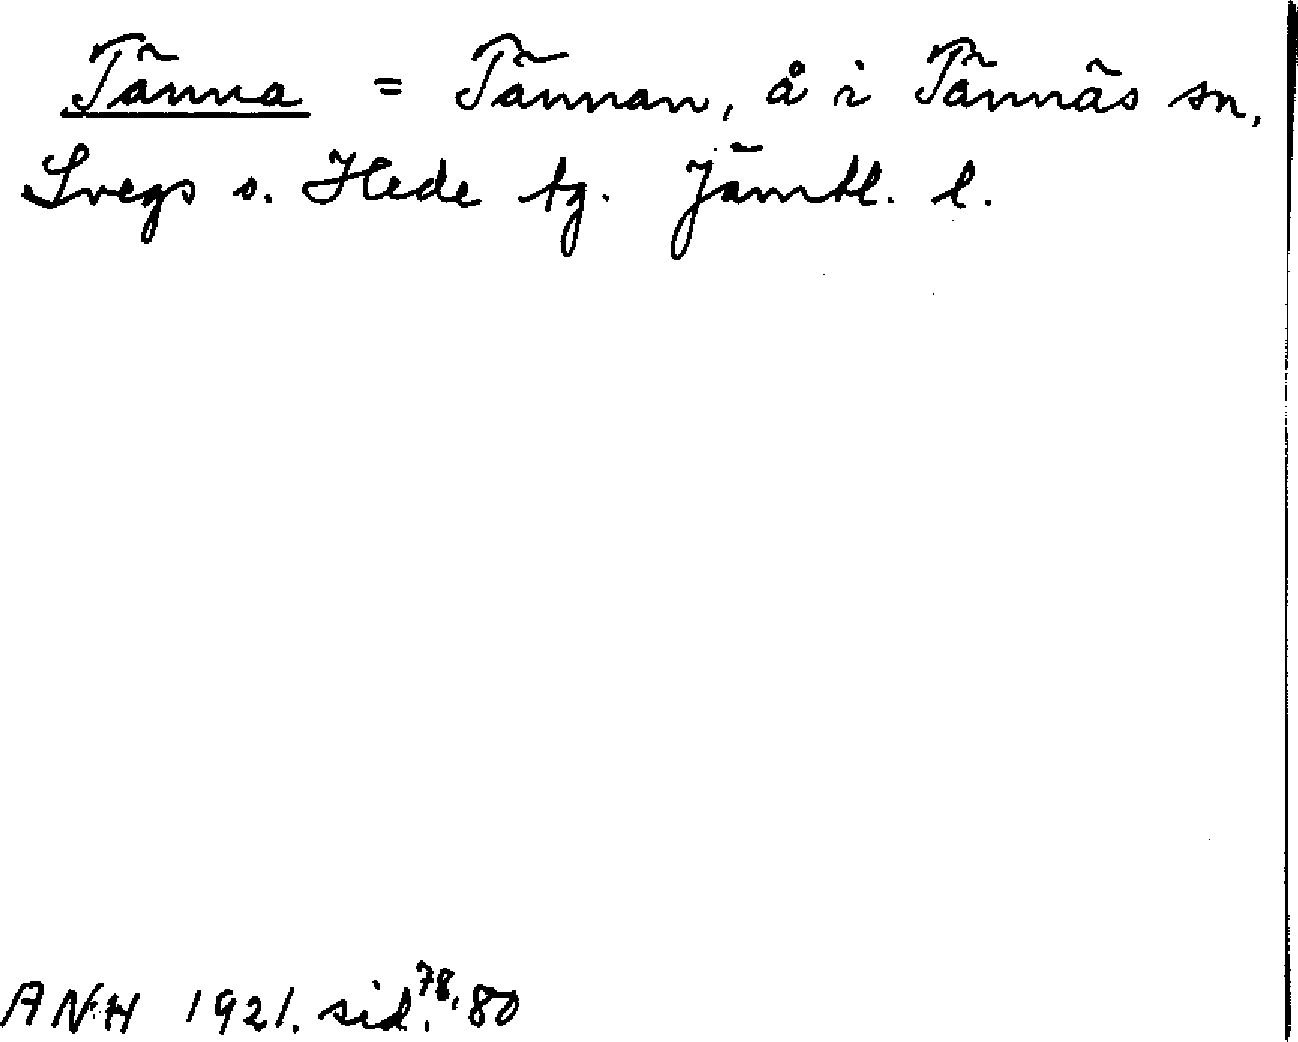 Tänna = Tännan, å i Tännäs sn,
Svegs o. Hede tg. Jämtl. l.
ANH 1921. sid. 78, 80